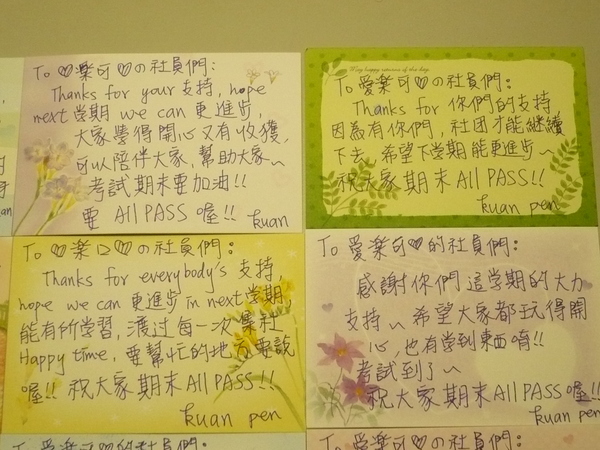 To ♡樂可♡の社員們:
Thanks for your 支持, hope
next 學期 we can 更進步,
大家學得開心又有收獲,
可以陪伴大家, 幫助大家~
考試期末要加油!!
要 All PASS 喔!! kuan
Many happy returns of the day
To 愛樂可♡の社員們:
Thanks for 你們的支持,
因為有你們, 社团才能継續
下去, 希望下學期能更進步~
祝大家期末 All PASS!!
kuan pen
To ♡樂口♡の社員們:
Thanks for everybody's 支持,
hope we can 更進步 in next 學期,
能有所學習, 渡过每一次集社
Happy time, 要幫忙的地方要說
喔!! 祝大家期末 All PASS!!
kuan pen
To 愛樂可♡的社員們:
感謝你們這學期的大力
支持~ 希望大家都玩得開
心, 也有學到東西唷!!
考試到了~
祝大家期末 All PASS 喔!!
kuan pen
To 愛樂可♡的社員們:
To 愛樂可♡の社員們: